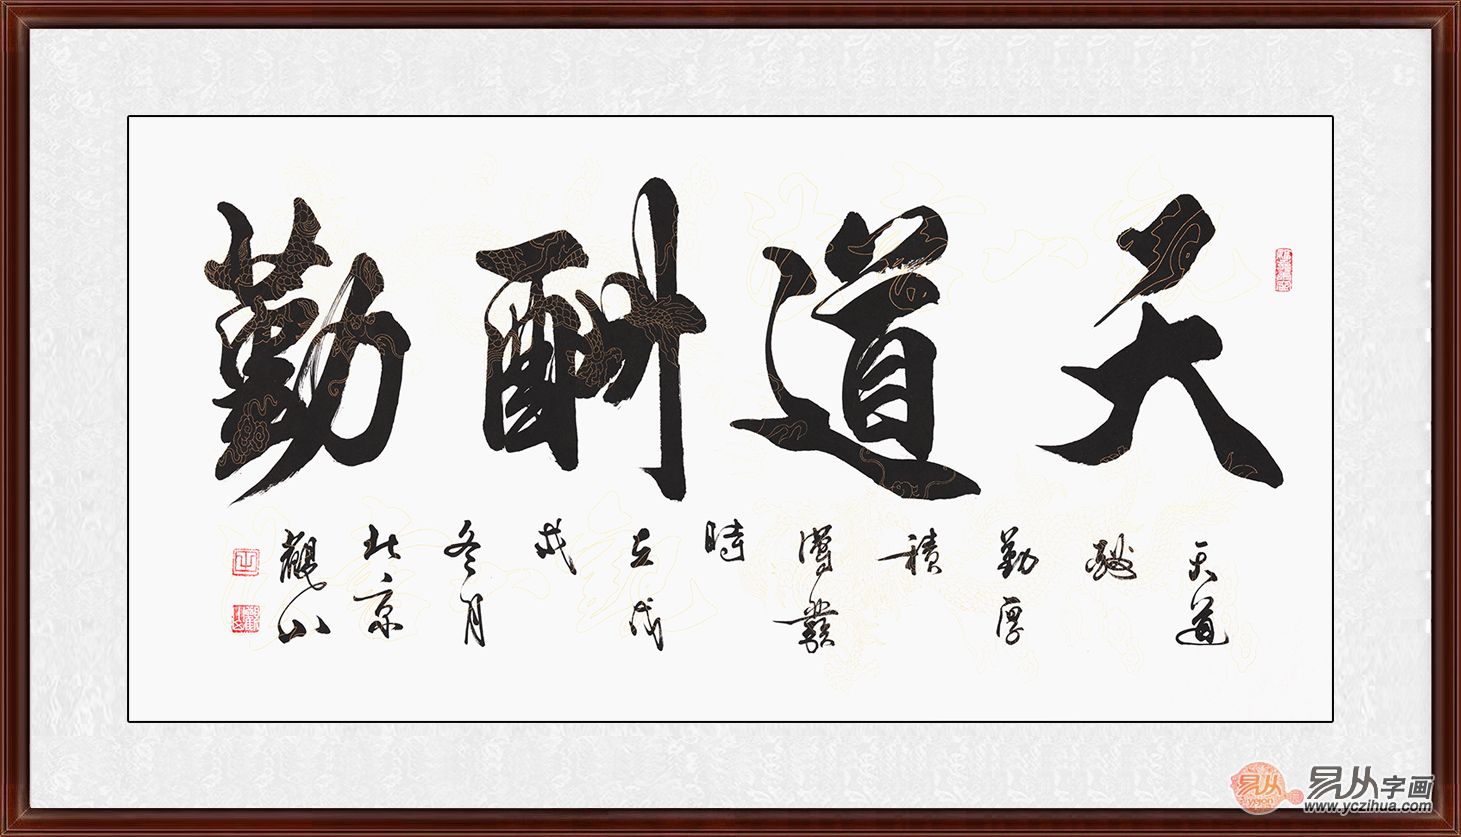 天道酬勤
天道
酬
勤厚
積
薄發
時
在戊
戌
冬月
北京
觀山
易从
易从字画
www.yczihua.com